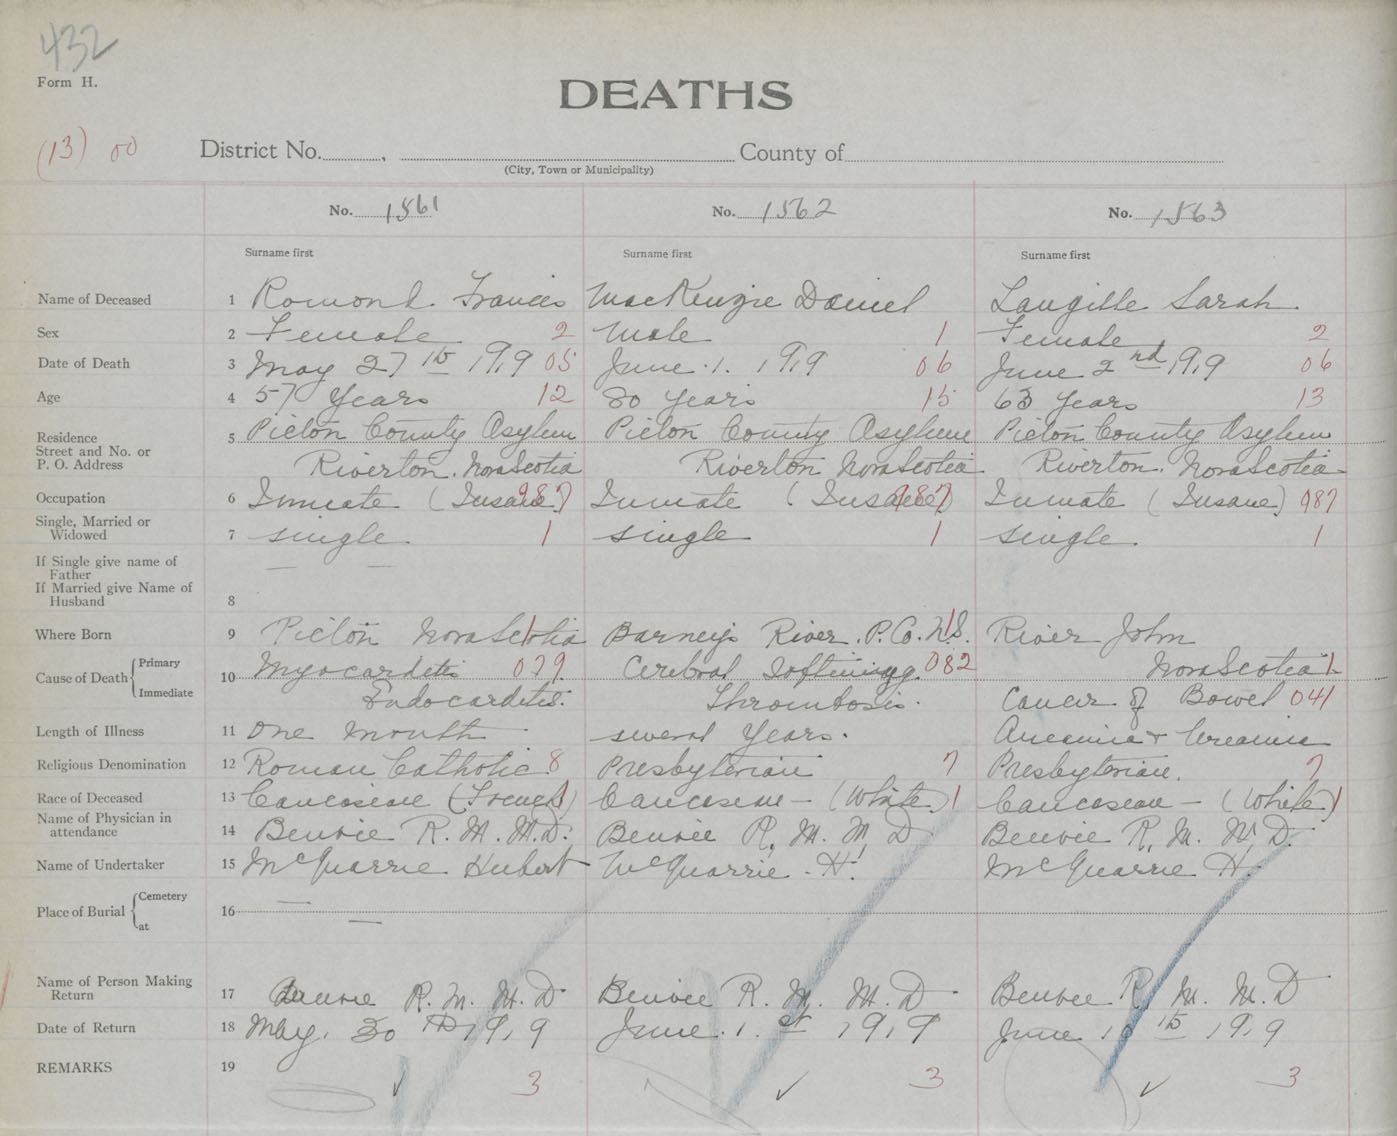 432
Form H.
DEATHS
(13) 00 District No. , County of
(City, Town or Municipality)
No. 1561 No. 1562 No. 1563
Surname first Surname first Surname first
Name of Deceased 1 Romond Francis MacKenzie Daniel Langille Sarah
Sex 2 Female 2 Male 1 Female 2
Date of Death 3 May 27th 1919 05 June 1. 1919 06 June 2nd 1919 06
Age 4 57 Years 12 80 Years 15 63 Years 13
Residence
Street and No. or
P. O. Address
5 Pictou County Asylum Pictou County Asylum Pictou County Asylum
Riverton. Nova Scotia Riverton Nova Scotia Riverton. Nova Scotia
Occupation 6 Inmate (Insane) 987 Inmate (Insane) 987 Inmate (Insane) 987
Single, Married or
Widowed
7 single 1 single 1 single. 1
If Single give name of
Father
If Married give Name of
Husband
8
Where Born 9 Pictou Nova Scotia 1 Barney's River. P. Co. N.S. 1 River John
Nova Scotia 1
Cause of Death Primary 10 Myocarditis 079 Cerebral Softening. 082
Immediate Endocarditis. Thrombosis. Cancer of Bowel 041
Length of Illness 11 One Month several Years. Aneamia + Ureamia
Religious Denomination 12 Roman Catholic 8 Presbyterian 7 Presbyterian. 7
Race of Deceased 13 Caucasean (French) 1 Caucasean - (White) 1 Caucasean - (White) 1
Name of Physician in
attendance
14 Benvie R. M. M.D. Benvie R. M. M.D Benvie R. M. M.D.
Name of Undertaker 15 McQuarrie Hubert McQuarrie. H. McQuarrie H.
Place of Burial Cemetery
at
16
Name of Person Making
Return
17 Benvie R. M. M. D Benvie R. M. M. D Benvie R. M. M. D
Date of Return 18 May. 30th 1919 June. 1. st 1919 June 10th 1919
REMARKS 19
3 3 3